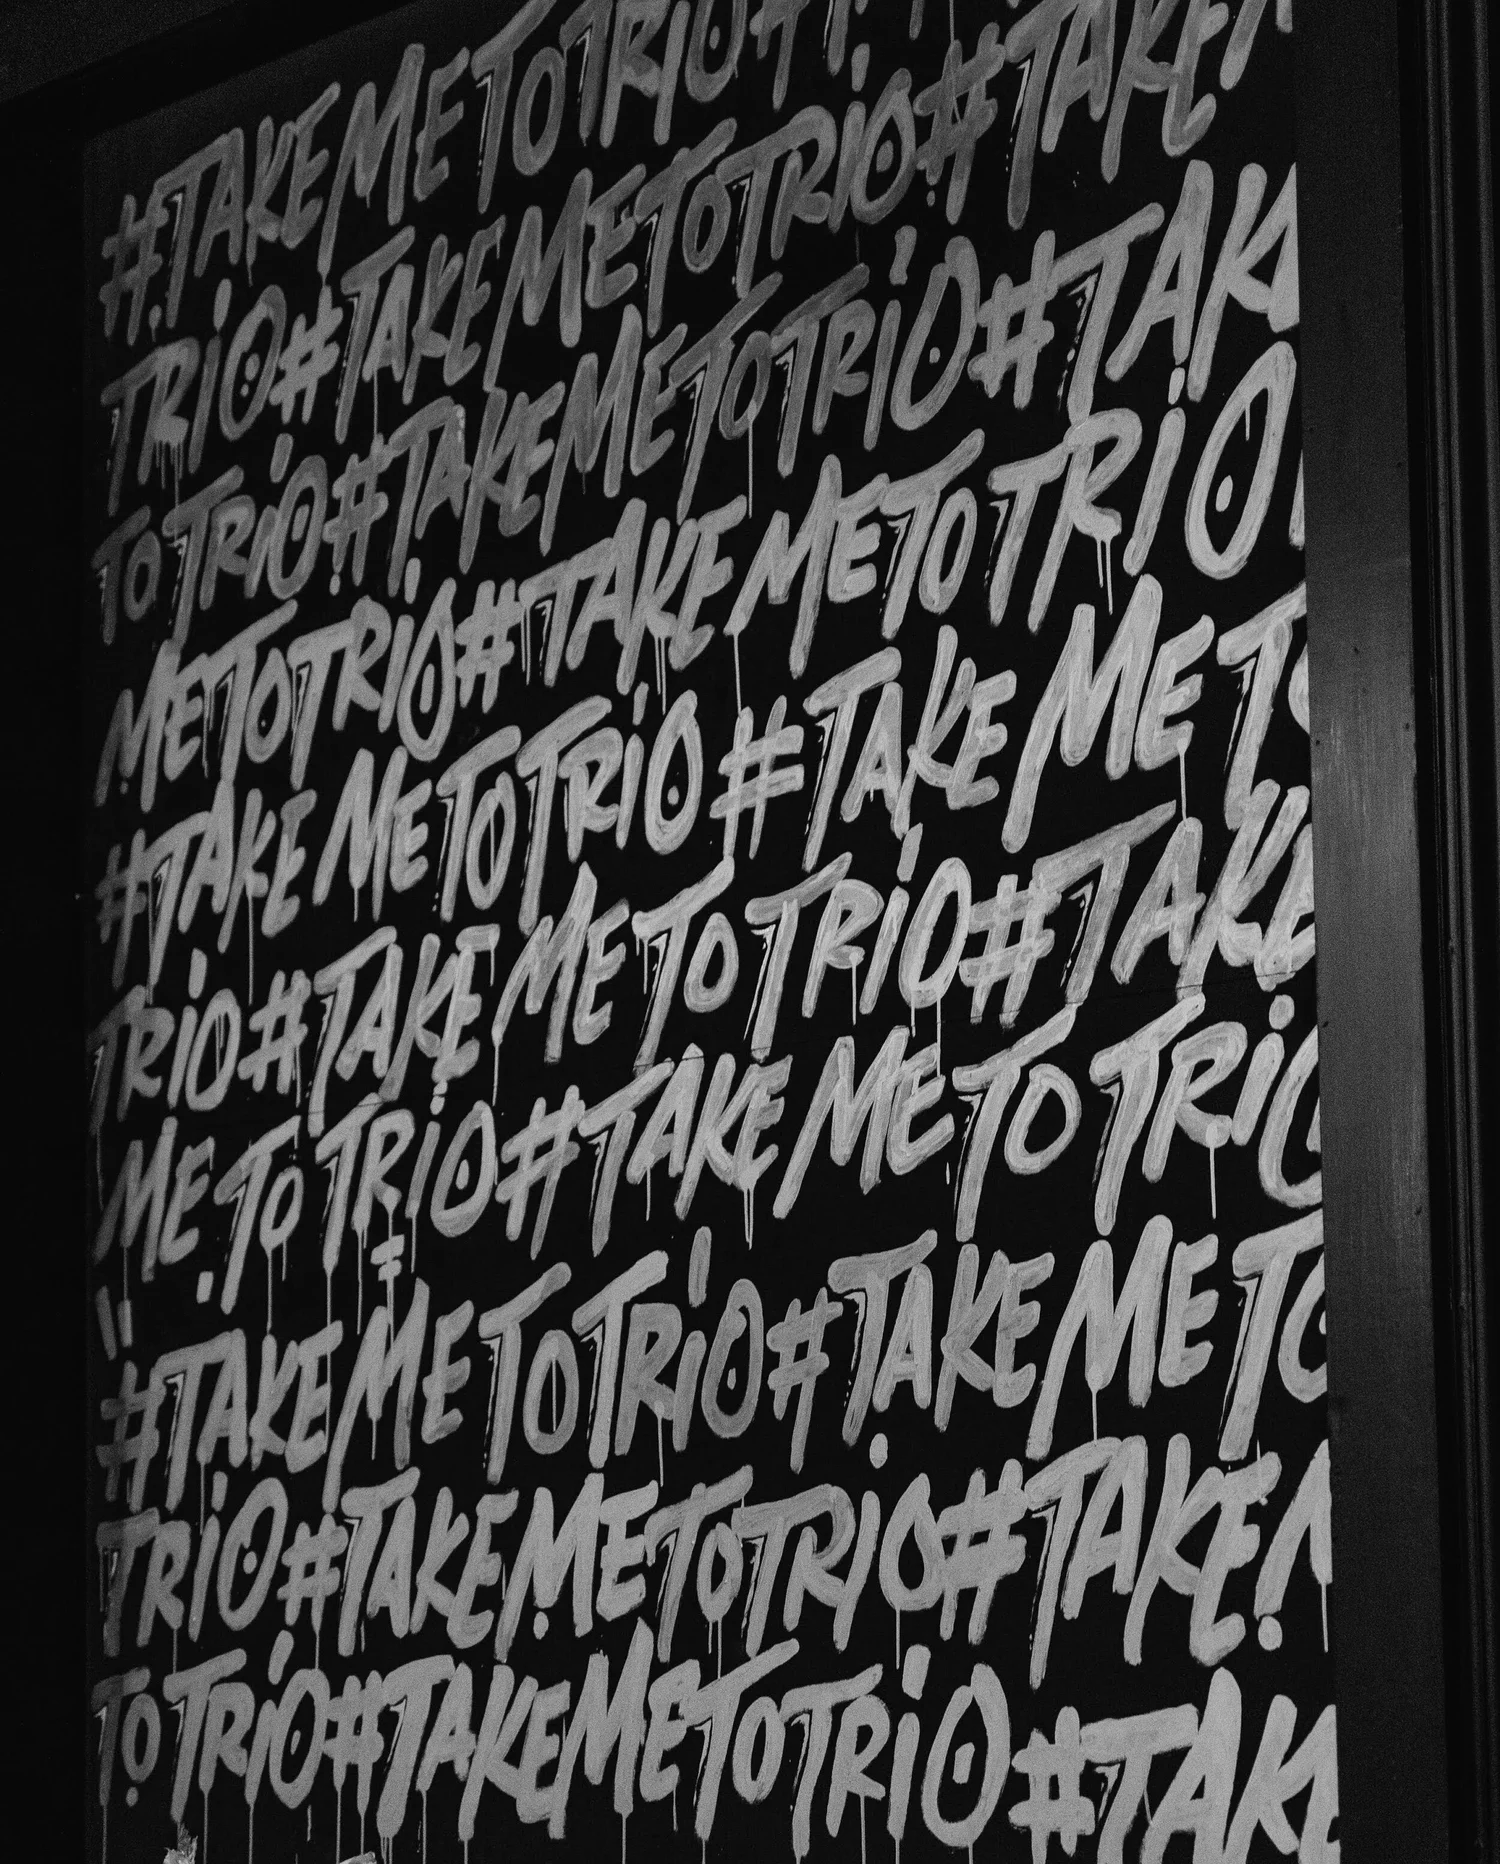 #TAKE ME TO TRIO #
TRIO #TAKE ME TO TRIO #TAKE
TO TRIO #TAKE ME TO TRIO #TAK
ME TO TRIO #TAKE ME TO TRIO
#TAKE ME TO TRIO #TAKE ME TO
TRIO #TAKE ME TO TRIO #TAKE
ME TO TRIO #TAKE ME TO TRIO
#TAKE ME TO TRIO #TAKE ME TO
TRIO #TAKE ME TO TRIO #TAKE M
TO TRIO #TAKE ME TO TRIO #TAK